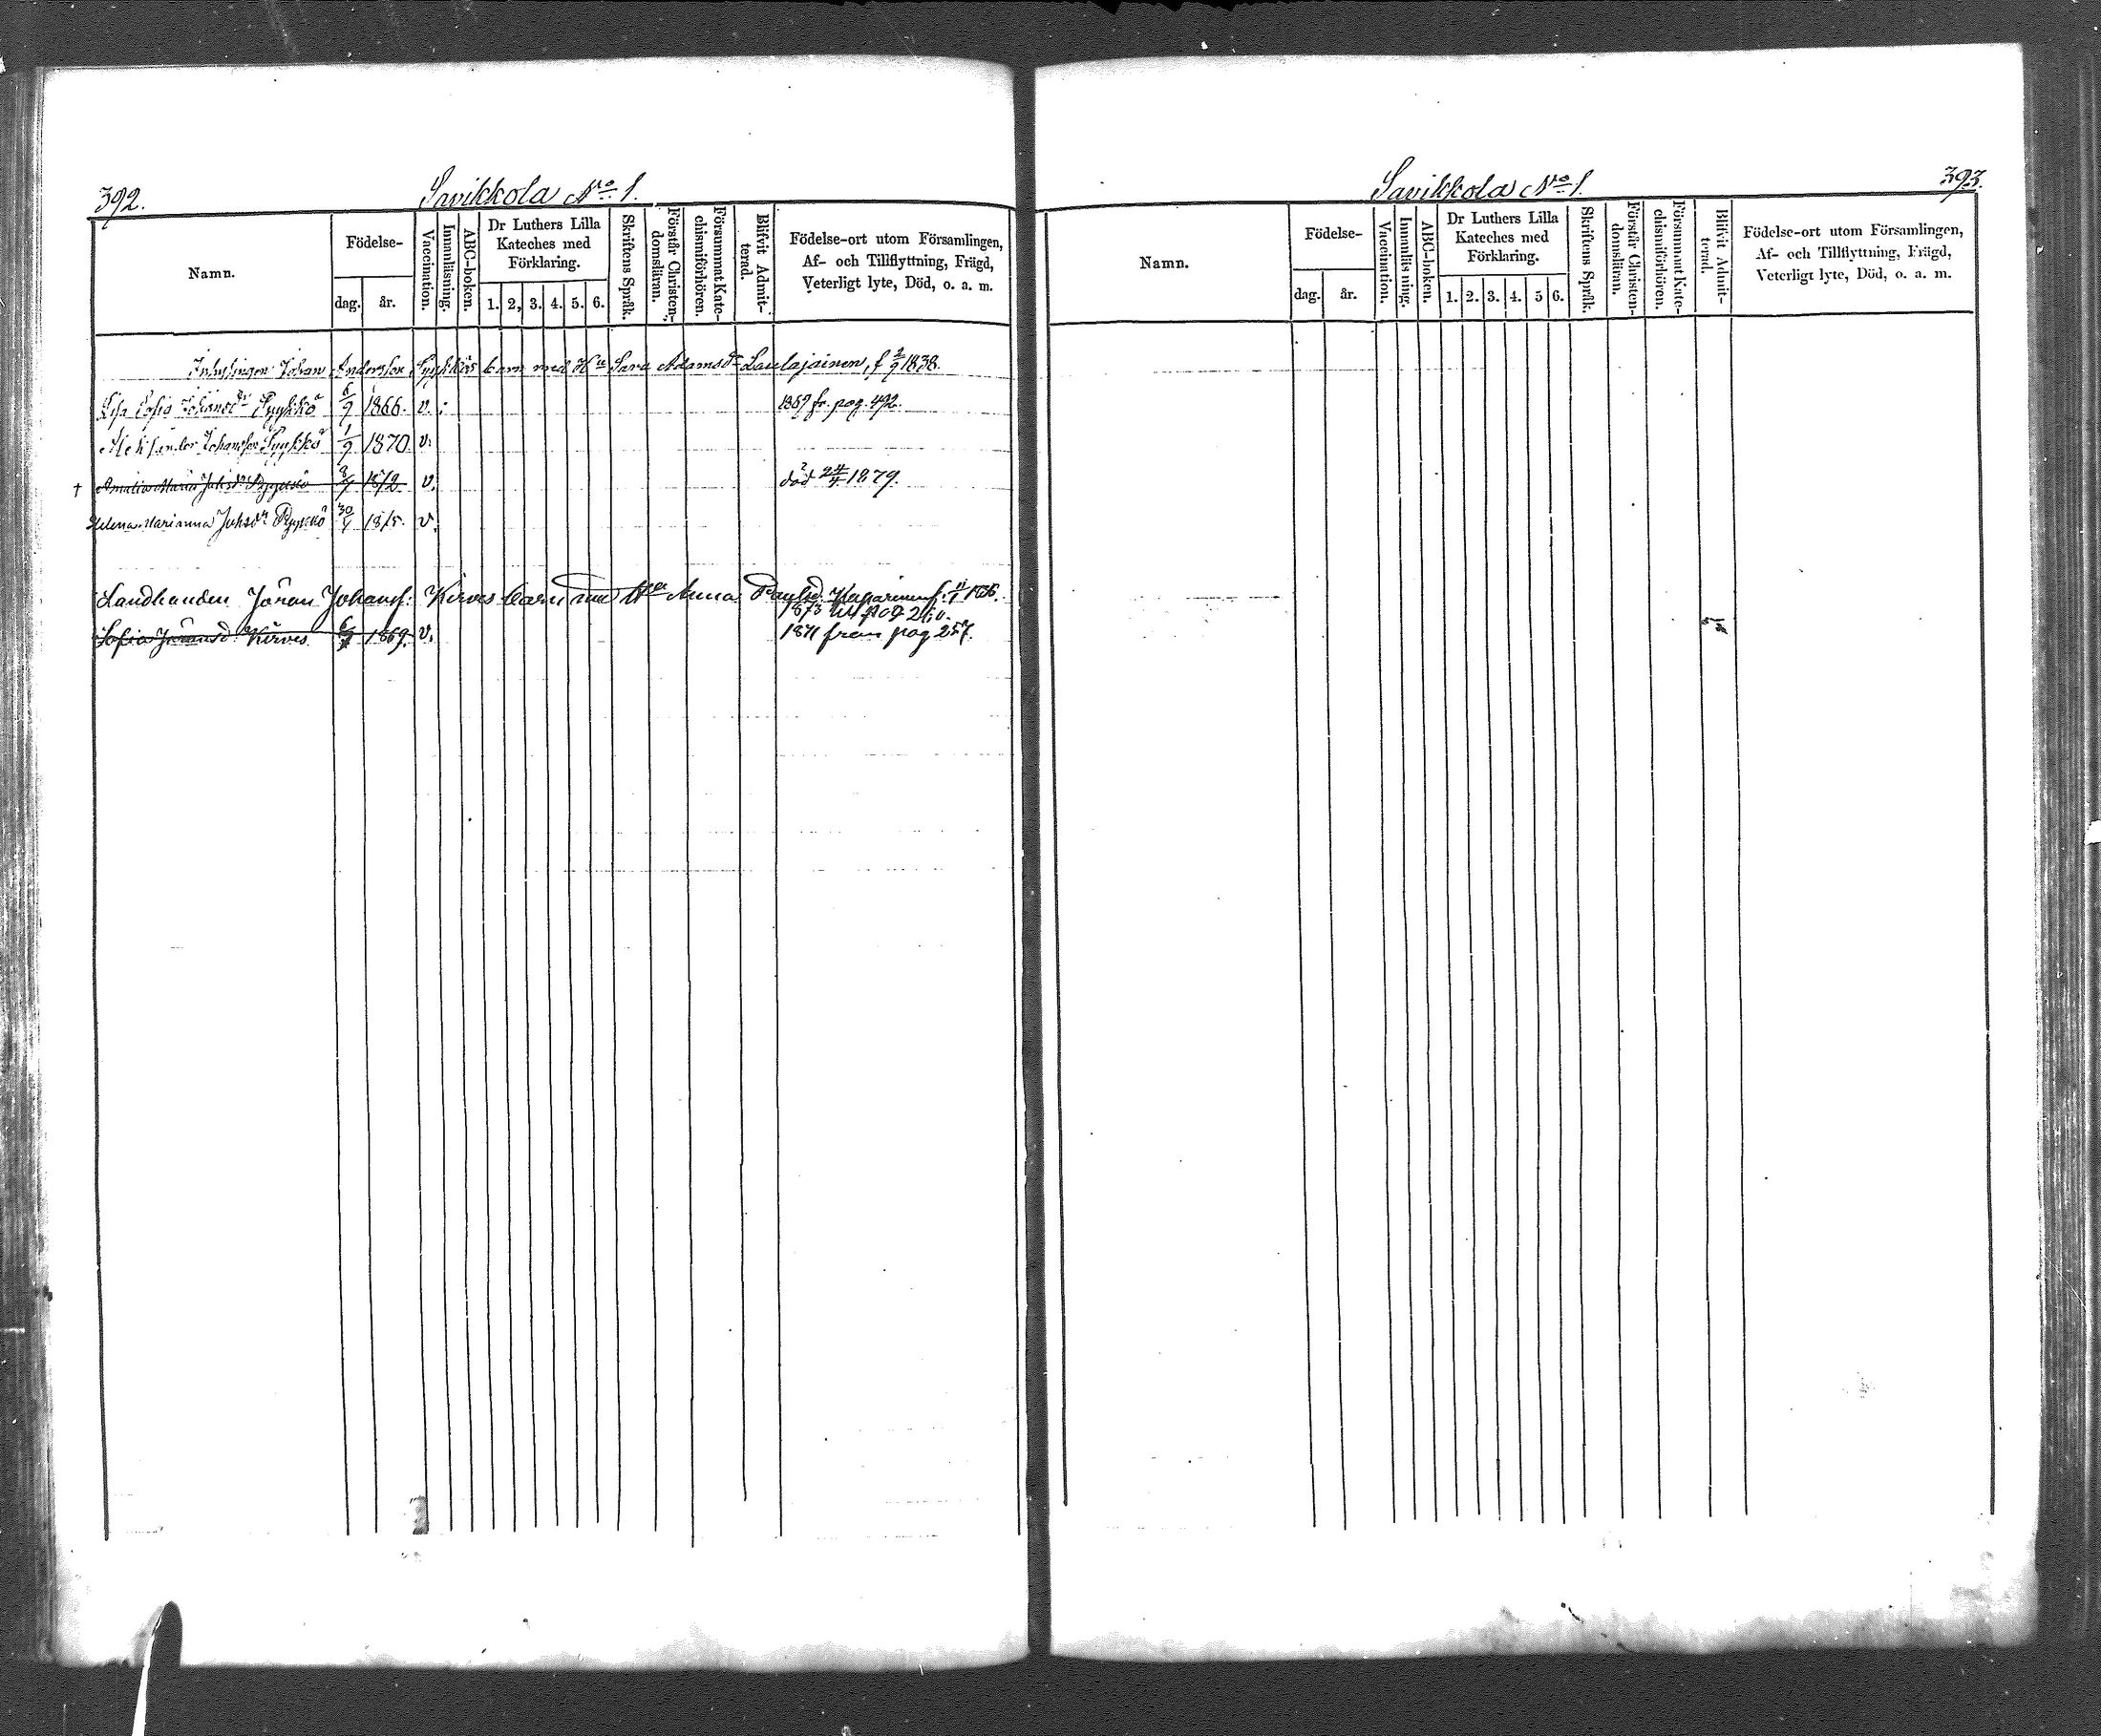 392.
Savikkola No 1.
Namn.
Födelse-
dag.
år.
Vaccination.
Innanläsning.
ABC-boken.
Dr Luthers Lilla
Kateches med
Förklaring.
1. 2, 3. 4. 5. 6.
Skriftens Språk.
Förstår Christen-
domsläran.
Försummat Kate-
chismiförhören.
Blifvit Admit-
terad.
Födelse-ort utom Församlingen,
Af- och Tillflyttning, Frägd,
Veterligt lyte, Död, o. a. m.
Inhysingen Johan Andersson barn med Hu Sara Adamsdr Laulajainen, f 2/9 1838.
Lisa Sofia Johansdr Pyykkö 6/9 1866. v. 1869 fr. pag. 492.
Alexander Johansson Pyykkö 1/9 1870. v.
† Amalia Maria Johsdr Pyykkö 8/7 1872 v. död 24/4 1879.
Helena Marianna Johsdr Pyykkö 30/ 1875. v.
Landbonden Jöran Johansf: Kirves barn med Hu Anna Paulsd. f. 11/1 1836.
1873 till pag
Sofia Jöransd. Kirves 1869. v. 1871 från pag 257.
Savikkola No 1.
393.
Namn.
Födelse-
dag.
år.
Vaccination.
Innanläsning.
ABC-boken.
Dr Luthers Lilla
Kateches med
Förklaring.
1. 2. 3. 4. 5 6.
Skriftens Språk.
Förstår Christen-
domsläran.
Försummat Kate-
chismiförhören.
Blifvit Admit-
terad.
Födelse-ort utom Församlingen,
Af- och Tillflyttning, Frägd,
Veterligt lyte, Död, o. a. m.